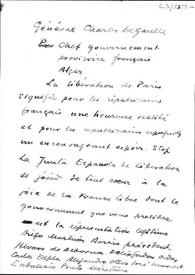 Général Charles de Gaulle
Chef gouvernement
provisoire français
Alger
La libération de Paris
signifie pour les républicains
français une heureuse réalité
et pour les républicains espagnols
un encourageant espoir. Stop
La Junta Española de Liberación
se joint de tout coeur à la
joie de la France libre dont le
gouvernement que vous présidez
est la représentation légitime
Diego Martínez Barrio président.
Álvaro de Albornoz
Carlos Esplá
Indalecio Prieto Secrétaire